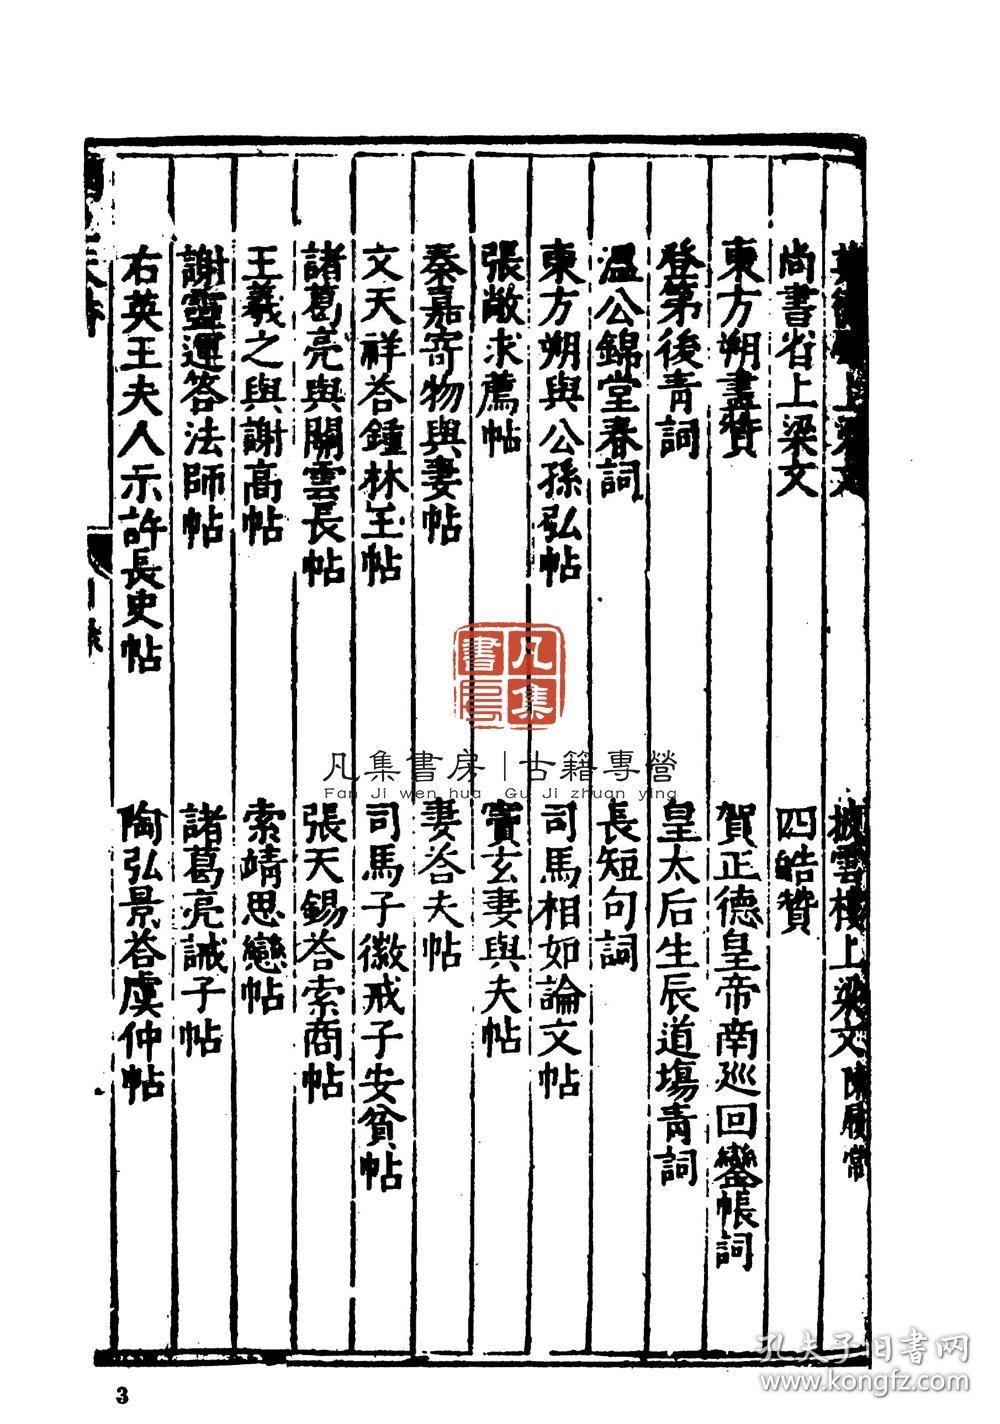 上梁文　披雲樓上梁文
尚書省上梁文　四皓贊
東方朔畫贊　賀正德皇帝南廵回鑾帳詞
登第後青詞　皇太后生辰道塲青詞
溫公錦堂春詞　長短句詞
東方朔與公孫弘帖　司馬相如論文帖
張敞求薦帖　竇玄妻與夫帖
秦嘉寄物與妻帖　妻荅夫帖
文天祥荅鍾林王帖　司馬子徽戒子安貧帖
諸葛亮與關雲長帖　張天錫荅索商帖
王羲之與謝高帖　索靖思戀帖
謝靈運答法師帖　諸葛亮誡子帖
右英王夫人示許長史帖　陶弘景荅虞仲帖
凡集書房
凡集書房 | 古籍專營
Fan Ji wen hua Gu Ji zhuan ying
孔夫子旧书网
www.kongfz.com
3